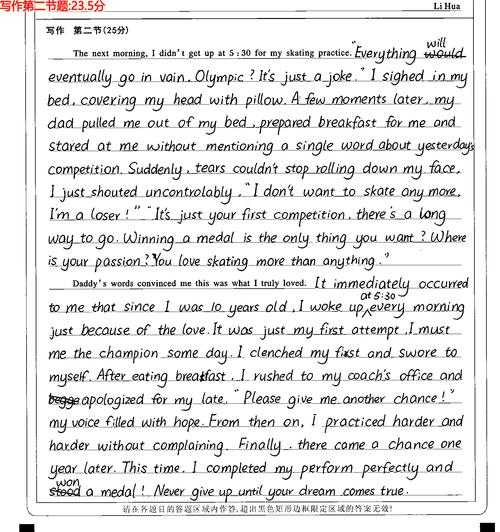 写作第二节题:23.5分
Li Hua
写作 第二节(25分)
The next morning, I didn't get up at 5:30 for my skating practice. "Everything will would
eventually go in vain. Olympic? It's just a joke." I sighed in my
bed, covering my head with pillow. A few moments later, my
dad pulled me out of my bed, prepared breakfast for me and
stared at me without mentioning a single word about yesterday's
competition. Suddenly, tears couldn't stop rolling down my face,
I just shouted uncontrolably, "I don't want to skate any more.
I'm a loser!" "It's just your first competition, there's a long
way to go. Winning a medal is the only thing you want? Where
is your passion? You love skating more than anything."
Daddy's words convinced me this was what I truly loved. It immediately occurred
to me that since I was 10 years old, I woke up at 5:30 every morning
just because of the love. It was just my first attempt, I must
me the champion some day. I clenched my fist and swore to
myself. After eating breakfast, I rushed to my coach's office and
begge apologized for my late. "Please give me another chance!"
my voice filled with hope. From then on, I practiced harder and
harder without complaining. Finally, there came a chance one
year later. This time, I completed my perform perfectly and
stood won a medal! Never give up until your dream comes true.
请在各题目的答题区域内作答,超出黑色矩形边框限定区域的答案无效!